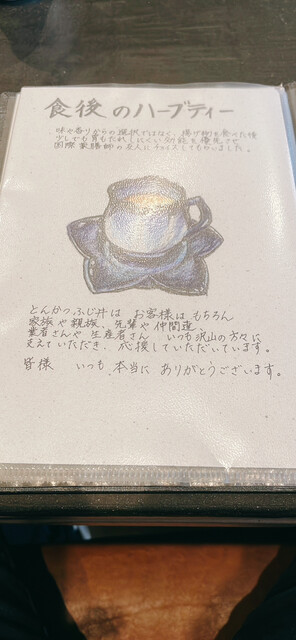 食後のハーブティー
味や香りからの選択ではなく、揚げ物を食べた後
少しでも胃もたれしにくい効能を優先させ
国際薬膳師の友人にチョイスしてもらいました。
とんかつふじ井は お客様はもちろん
家族や親族、先輩や仲間達、
業者さんや生産者さん いつも沢山の方々に
支えていただき、応援していただいています。
皆様 いつも 本当に ありがとうございます。